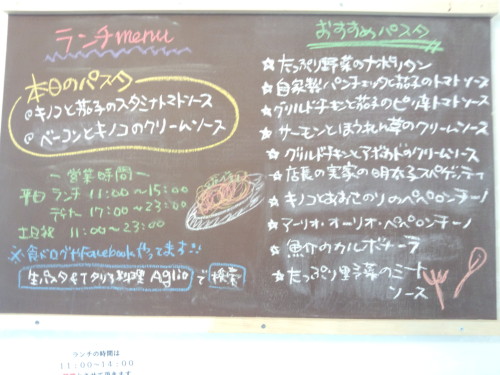 ランチmenu
本日のパスタ
@キノコと茄子のスタミナトマトソース
@ベーコンとキノコのクリームソース
ー営業時間ー
平日 ランチ 11:00〜15:00
ディナー 17:00〜23:00
土日祝 11:00〜23:00
※食べログやFacebookやってます!!
生パスタ&イタリア料理 Aglio で 検索
おすすめパスタ
☆たっぷり野菜のナポリタン
☆自家製パンチェッタと茄子のトマトソース
☆グリルドチキンと茄子のピリ辛トマトソース
☆サーモンとほうれん草のクリームソース
☆グリルドチキンとアボカドのクリームソース
☆店長の実家の明太子スパゲッティ
☆キノコとあおのりのペペロンチーノ
☆アーリオ・オーリオ・ペペロンチーノ
☆魚介のカルボナーラ
☆たっぷり野菜のミート
ソース
ランチの時間は
11:00~14:00